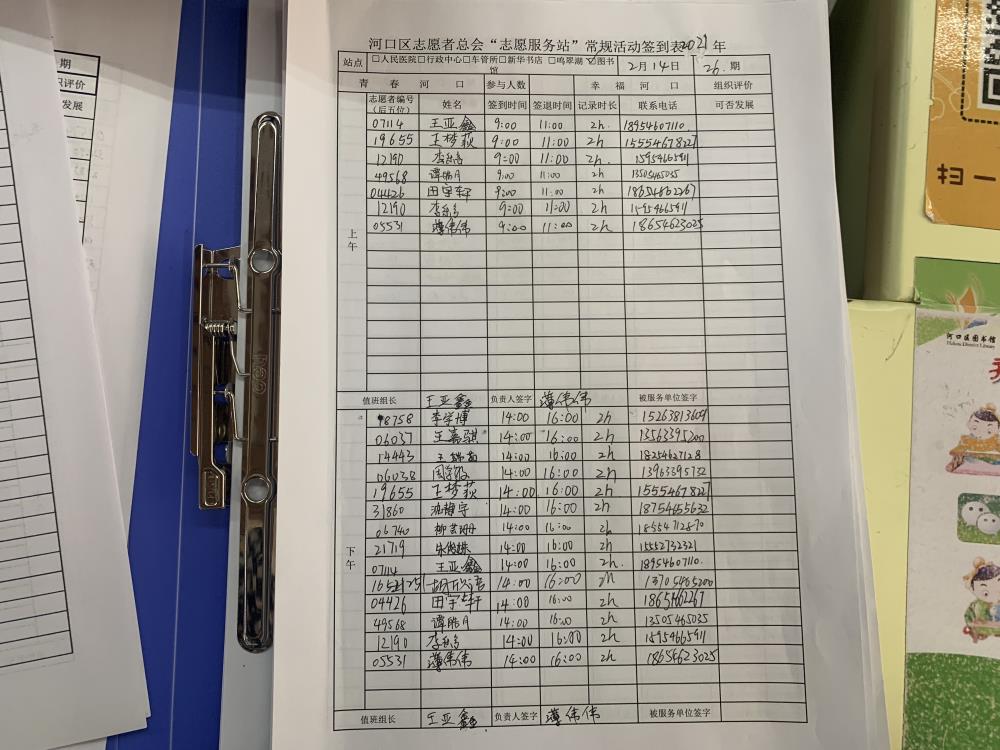 河口区志愿者总会“志愿服务站”常规活动签到表2021年
站点 □人民医院□行政中心□车管所□新华书店 □鸣翠湖 ☑图书馆 2月14日 26.期
青春河口 参与人数 幸福河口 组织评价
志愿者编号（后五位） 姓名 签到时间 签退时间 记录时长 联系电话 可否发展
上午
07114 王亚鑫 9:00 11:00 2h. 18954607110.
19655 王梦荻 9:00 11:00 2h 15554678227
12190 9:00 11:00 2h. 15954665911
49568 谭皓月 9:00 11:00 2h 13505465035
04426 田宇轩 9:00 11:00 2h 18654862267
12190 9:00 11:00 2h 15954665911
05531 薄伟伟 9:00 11:00 2h 18654623025
值班组长 王亚鑫 负责人签字 薄伟伟 被服务单位签字
下午
18758 李学博 14:00 16:00 2h 15263813609
06037 王嘉骐 14:00 16:00 2h 13563395200
14443 14:00 16:00 2h 18254627128
06038 14:00 16:00 2h 13963395732
19655 王梦荻 14:00 16:00 2h 15554678227
31860 14:00 16:00 2h 18754455632
06740 14:00 16:00 2h 18554712870
21719 14:00 16:00 2h 15552732321
07114 王亚鑫 14:00 16:00 2h. 18954607110.
14:00 16:00 2h 13705465200
04426 田宇轩 14:00 16:00 2h
49568 谭皓月 14:00 16:00 2h 13505465035
12190 14:00 16:00 2h 15954665911
05531 薄伟伟 14:00 16:00 2h 18654623025
值班组长 王亚鑫 负责人签字 薄伟伟 被服务单位签字
期
织评价
发展
扫一
河口区图书馆
Hekou District Library